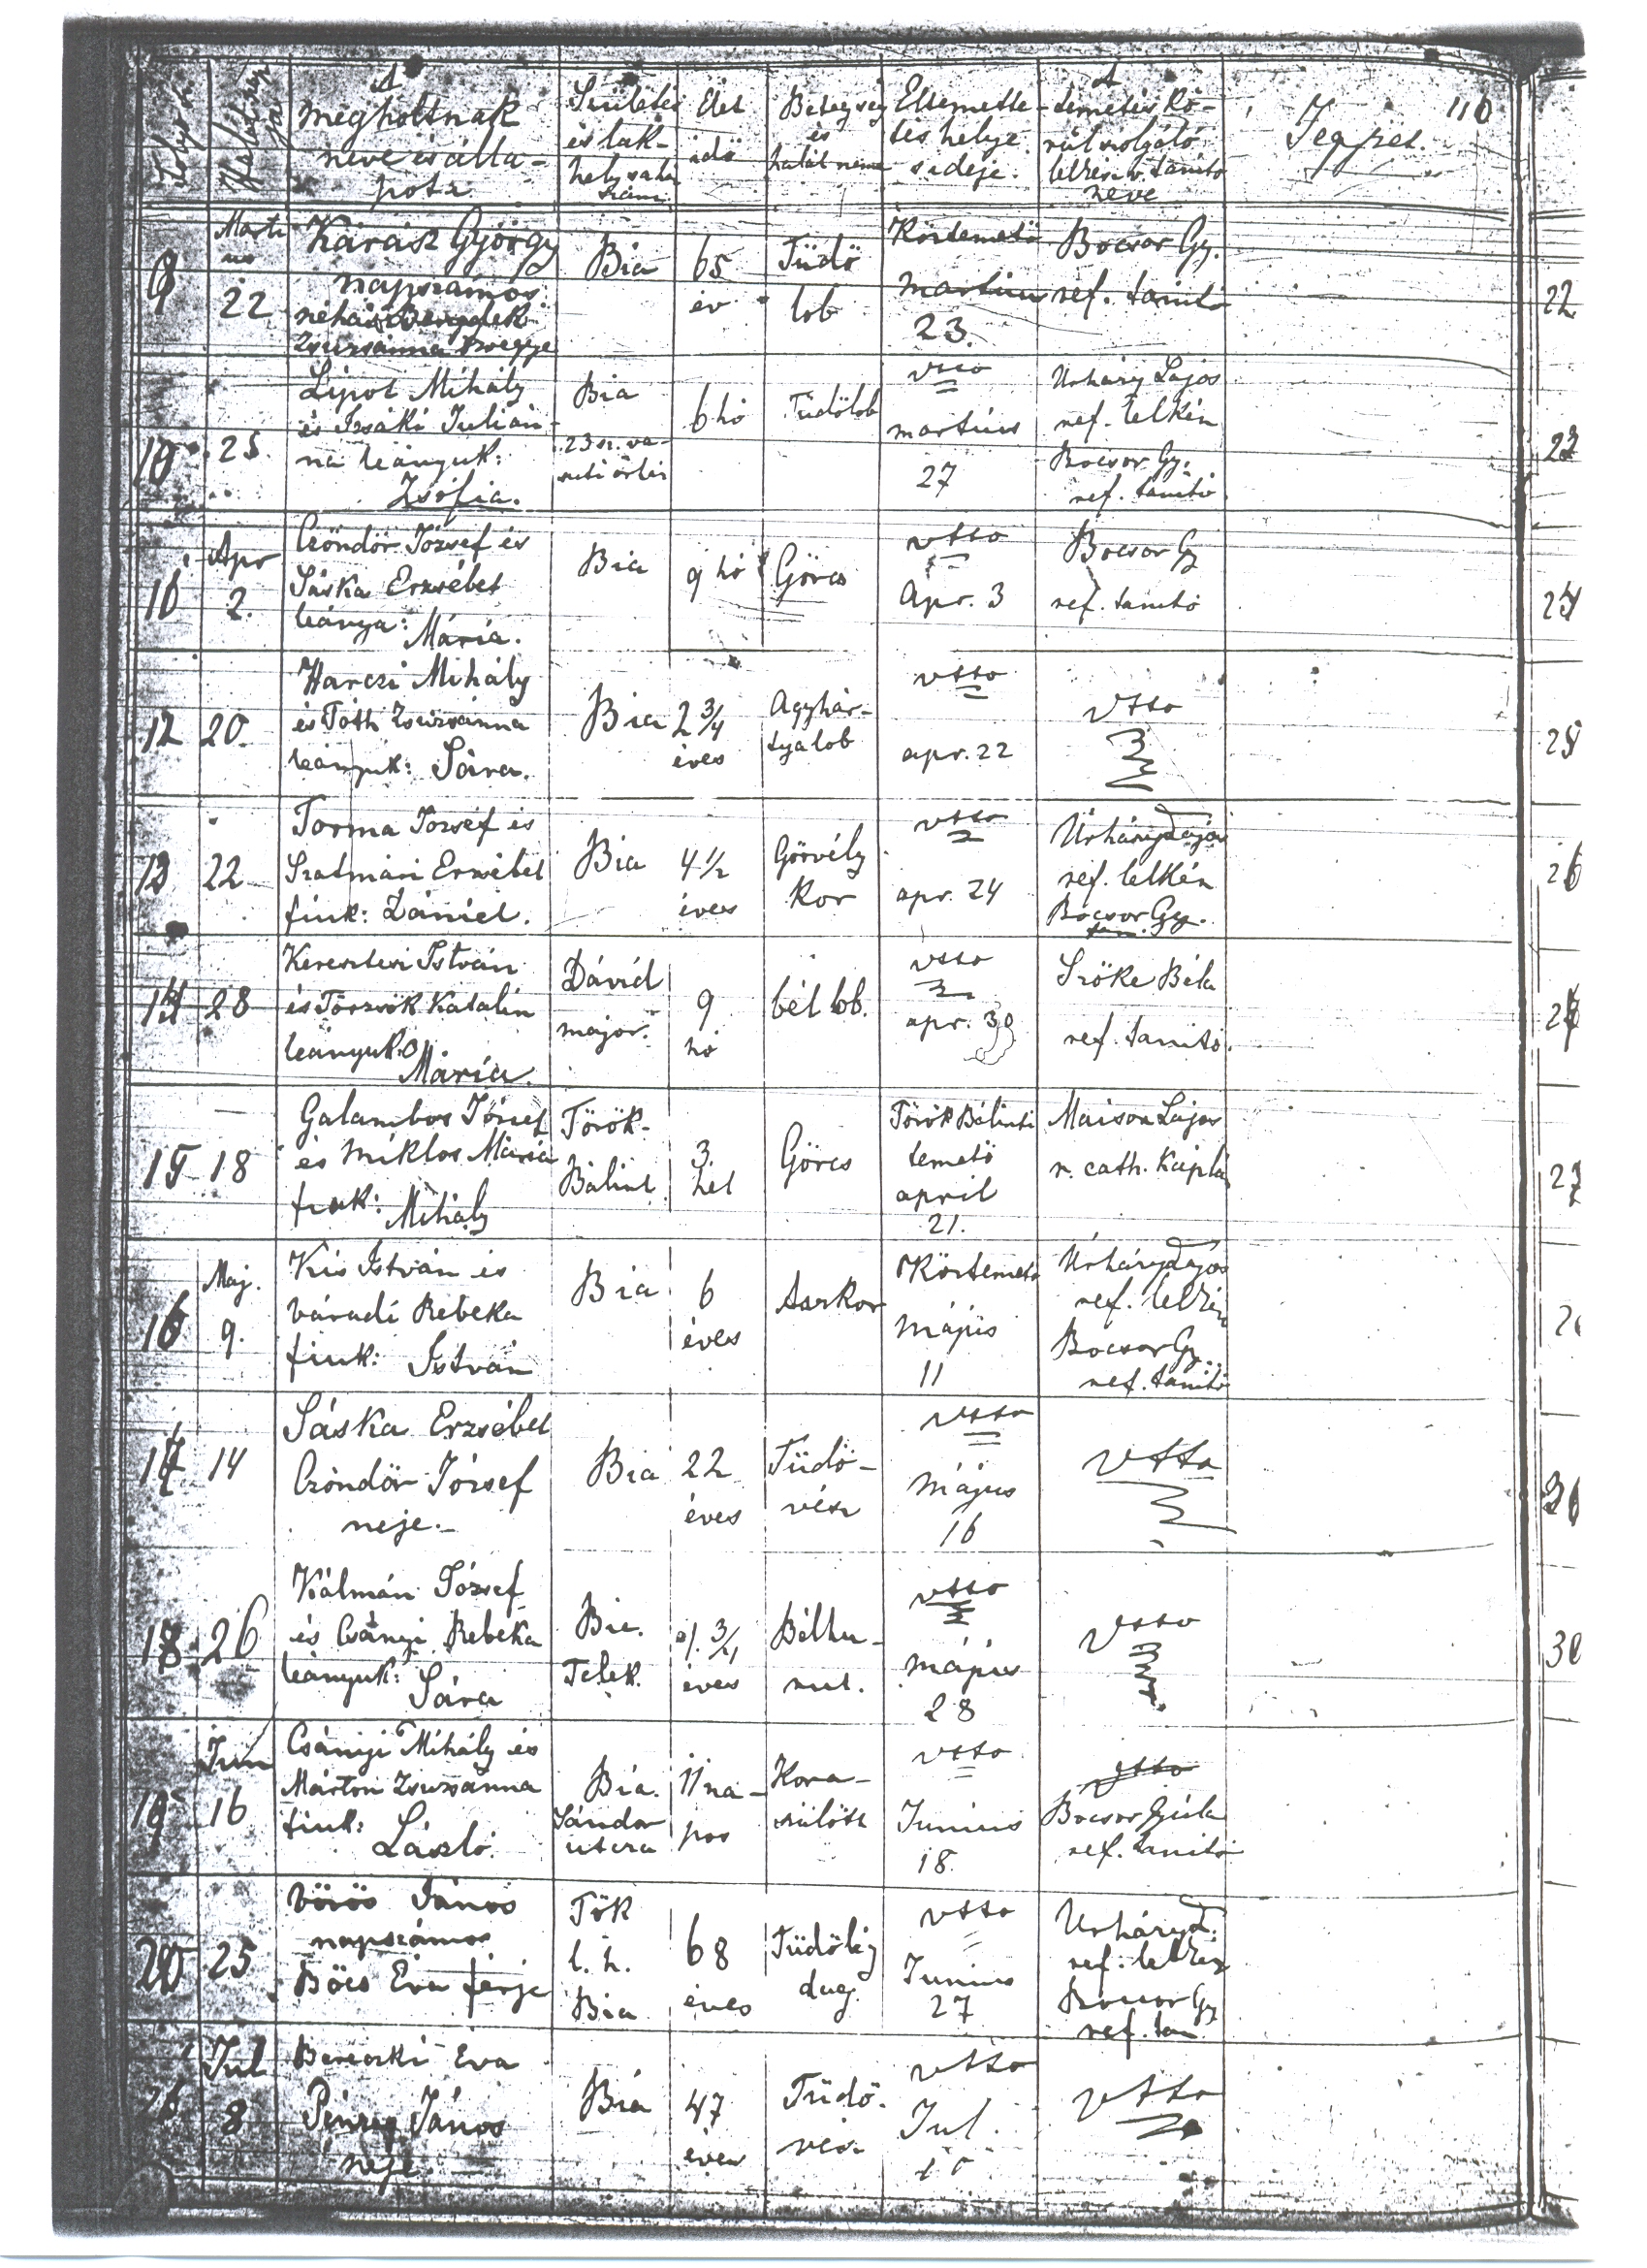 Folyó
Halálozás
A
megholtnak
neve és álla-
pota
Születés
és lak-
hely s a ház
szám
Élet
idő
Betegség
és
halál neme
Eltemette-
tés helye
s ideje.
A
temetés kö-
rül szolgáló
lelkész v. tanító
neve
Jegyzet.
116
9
Marti
us
22
Kárász György
napszámos
néhai
Zsuzsánna özvegye
Bia
65
év
Tüdő
lob
Köztemető
martius
23.
Bocsor Gy.
ref. tanító
22
10
25.
Lipót Mihály
és Izsáki Julián-
na leányuk:
Zsófia.
Bia
23 sz. va-
suti őrház
6 hó
Tüdőlob
vtto
martius
27
Urháry Lajos
ref. lelkész
Bocsor Gy.
ref. tanító
23
Apr
2.
Czöndör József és
Sáska Erzsébet
leánya: Mária.
Bia
9 hó
Görcs
vtto
Apr. 3
Bocsor Gy
ref. tanító
24
12
20.
Harczi Mihály
és Tóth Zsuzsánna
leányuk: Sára.
Bia
2 3/4
éves
Agyhár-
tyalob
vtto
apr. 22
vtto
25
13
22
Torma József és
Szatmári Erzsébet
fiuk: Dániel.
Bia
4 1/2
éves
Görvély
kor
vtto
apr. 24
Úrháry Lajos
ref. lelkész
Bocsor Gy.
tan.
26
14
28
Keresztesi István
és Törzsök Katalin
leányuk:
Mária.
Dávid
major.
9
hó
bél lob.
vtto
apr. 30
Szőke Béla
ref. tanító.
27
15
18
Galambos József
és Miklos Mária
fiuk: Mihály
Török-
Bálint
3.
hét
Görcs
Török Bálinti
temető
april
21.
Maison Lajos
r. cath. káplán
16
Maj.
9.
Kis István és
Váradi Rebeka
fiuk: István
Bia
6
éves
Aszkor
Köztemető
május
11
Úrháry Lajos
ref. lelkész
Bocsor Gy.
ref. tanító
17
14
Sáska Erzsébet
Czöndör József
neje.-
Bia
22
éves
Tüdő-
vész
vtto
május
16
vtto
18
26
Kálmán József
és Csányi Rebeka
leányuk: Sára
Bia.
Telek.
1. 3/4
éves
Bélhu-
rut.
vtto
május
28
vtto
30
19
Jun
16
Csányi Mihály és
Márton Zsuzsánna
fiuk:
László.
Bia.
Sándor
utcza
11 na-
pos
Kora-
szülött
vtto
Junius
18.
vtto
Bocsor Gyula
ref. tanító
20
25
Vörös János
napszámos
Böcs Éva férje
Tök
l. h.
Bia
68
éves
Tüdőlég
dag.
vtto
Junius
27
Urháry L.
ref. lelkész
Bocsor Gy
ref. tan
Jul
8
Bereczki Éva
János
neje.
Bia
47
éves
Tüdő-
vész
vtto
Jul.
vtto